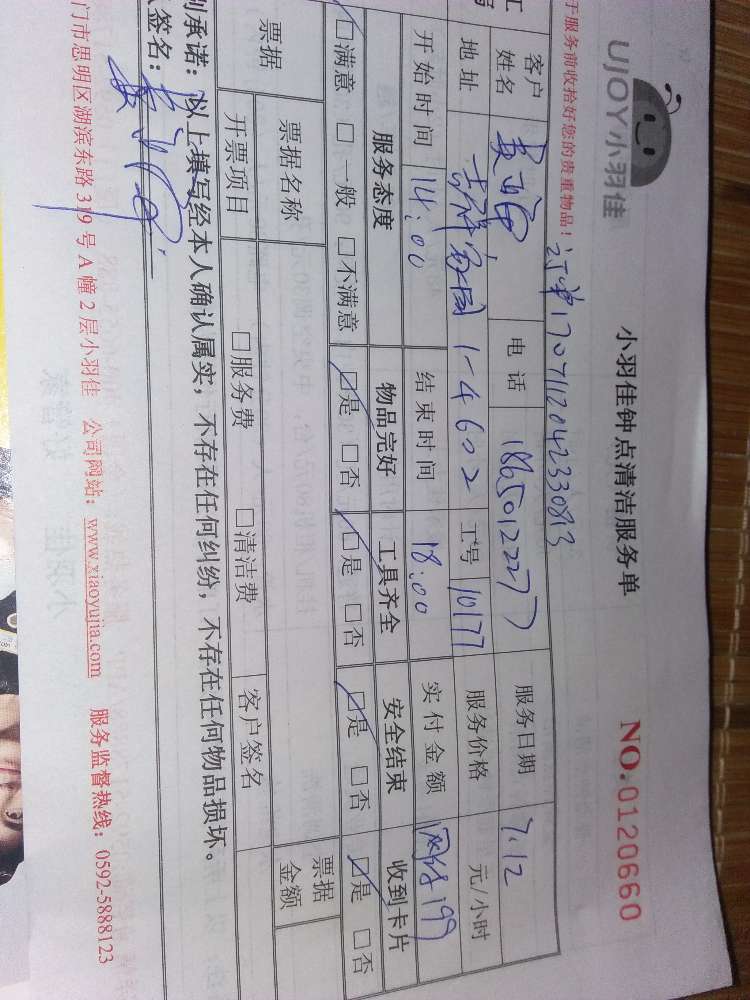 UJOY小羽佳
小羽佳钟点清洁服务单
NO.0120660
于服务前收拾好您的贵重物品！
订单1707112042330813
客户姓名 电话 18650122277 服务日期 7.12
地址 1-4602 工号 10177 服务价格 元/小时
开始时间 14:00 结束时间 18:00 实付金额 199
服务态度 物品完好 工具齐全 安全结束 收到卡片
☑满意 □一般 □不满意 ☑是 □否 ☑是 □否 ☑是 □否 ☑是 □否
票据 票据名称 票据金额
开票项目 □服务费 □清洁费 客户签名
承诺：以上填写经本人确认属实，不存在任何纠纷，不存在任何物品损坏。
签名：
门市思明区湖滨东路 319 号 A 幢 2 层小羽佳 公司网站：www.xiaoyujia.com 服务监督热线：0592-5888123